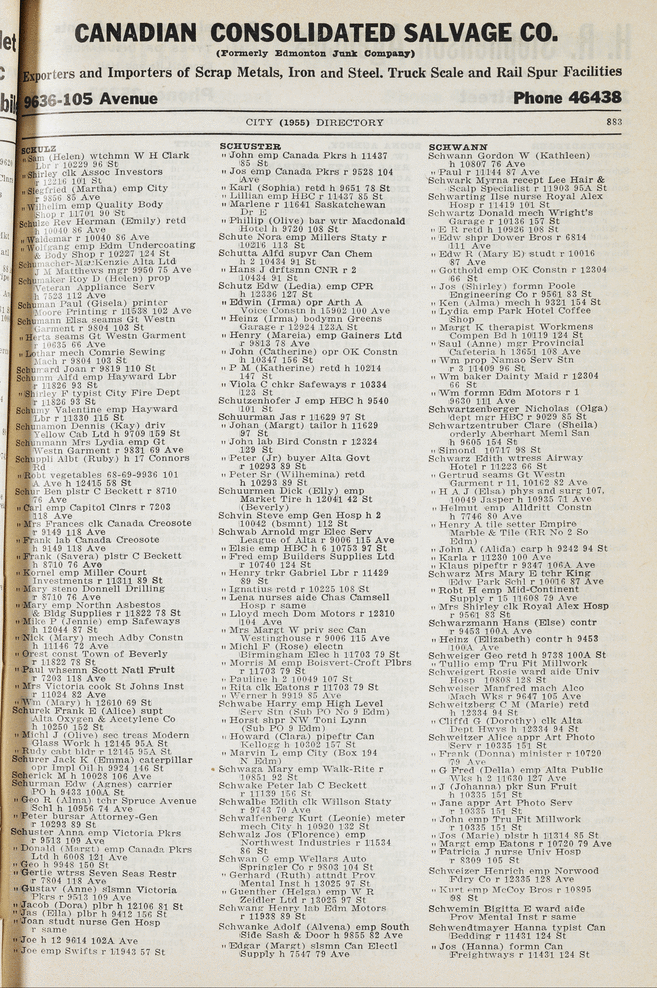 CANADIAN CONSOLIDATED SALVAGE CO.
(Formerly Edmonton Junk Company)
Exporters and Importers of Scrap Metals, Iron and Steel. Truck Scale and Rail Spur Facilities
9636-105 Avenue Phone 46438
CITY (1955) DIRECTORY 883
SCHULZ
" Sam (Helen) wtchmn W H Clark
Lbr r 10229 96 St
" Shirley clk Assoc Investors
r 12216 101 St
" Siegfried (Martha) emp City
r 9856 85 Ave
" Wilhelm emp Quality Body
Shop r 11701 90 St
Schulze Rev Herman (Emily) retd
h 10040 86 Ave
" Waldemar r 10040 86 Ave
" Wolfgang emp Edm Undercoating
& Body Shop r 10227 124 St
Schumacher-Mackenzie Alta Ltd
J M Matthews mgr 9950 75 Ave
Schumaker Roy D (Helen) prop
Veteran Appliance Serv
h 7523 112 Ave
Schuman Paul (Gisela) printer
Moore Printing r 11538 102 Ave
Schumann Elsa seams Gt Westn
Garment r 9804 103 St
" Herta seams Gt Westn Garment
r 10635 66 Ave
" Lothar mech Comrie Sewing
Mach r 9804 103 St
Schumard Joan r 9819 110 St
Schumm Alfd emp Hayward Lbr
r 11826 93 St
" Shirley F typist City Fire Dept
r 11826 93 St
Schumy Valentine emp Hayward
Lbr r 11330 115 St
Schunamon Dennis (Kay) driv
Yellow Cab Ltd h 9709 159 St
Schunmann Mrs Lydia emp Gt
Westn Garment r 9831 69 Ave
Schuppli Albt (Ruby) h 17 Connors
Rd
" Robt vegetables 68-69-9936 101
A Ave h 12415 58 St
Schur Ben plstr C Beckett r 8710
76 Ave
" Carl emp Capitol Clnrs r 7203
118 Ave
" Mrs Frances clk Canada Creosote
r 9149 118 Ave
" Frank lab Canada Creosote
h 9149 118 Ave
" Frank (Savera) plstr C Beckett
h 8710 76 Ave
" Kornel emp Miller Court
Investments r 11311 89 St
" Mary steno Donnell Drilling
r 8710 76 Ave
" Mary emp Northn Asbestos
& Bldg Supplies r 11822 78 St
" Mike P (Jennie) emp Safeways
h 12044 87 St
" Nick (Mary) mech Adby Constn
h 11146 72 Ave
" Orest const Town of Beverly
r 11822 78 St
" Paul whsemn Scott Natl Fruit
r 7203 118 Ave
" Mrs Victoria cook St Johns Inst
r 11024 82 Ave
" Wm (Mary) h 12610 69 St
Schurek Frank E (Alice) supt
Alta Oxygen & Acetylene Co
h 10250 152 St
" Michl J (Olive) sec treas Modern
Glass Work h 12145 95A St
" Rudy cabt bldr r 12145 95A St
Schurer Jack K (Emma) caterpillar
opr Impl Oil h 9924 146 St
Scherick M h 10028 106 Ave
Schurman Edw (Agnes) carrier
PO h 9433 100A St
" Geo R (Alma) tchr Spruce Avenue
Schl h 10956 74 Ave
" Peter bursar Attorney-Gen
r 10293 89 St
Schuster Anna emp Victoria Pkrs
r 9513 109 Ave
" Donald (Margt) emp Canada Pkrs
Ltd h 6008 121 Ave
" Geo h 9948 150 St
" Gertie wtrss Seven Seas Restr
r 7804 118 Ave
" Gustav (Anne) slsmn Victoria
Pkrs r 9513 109 Ave
" Jacob (Dora) plbr h 12106 81 St
" Jas (Ella) plbr h 9412 156 St
" Joan studt nurse Gen Hosp
r same
" Joe h 12 9614 102A Ave
" Joe emp Swifts r 11943 57 St
SCHUSTER
" John emp Canada Pkrs h 11437
85 St
" Jos emp Canada Pkrs r 9528 104
Ave
" Karl (Sophia) retd h 9651 78 St
" Lillian emp HBC r 11437 85 St
" Marlene r 11641 Saskatchewan
Dr E
" Phillip (Olive) bar wtr Macdonald
Hotel h 9720 108 St
Schute Nora emp Millers Staty r
10216 113 St
Schutta Alfd supvr Can Chem
h 2 10434 91 St
" Hans J drftsmn CNR r 2
10434 91 St
Schutz Edw (Ledia) emp CPR
h 12336 127 St
" Edwin (Irma) opr Arth A
Voice Constn h 15902 100 Ave
" Heinz (Irma) bodymn Greens
Garage r 12924 123A St
" Henry (Mareia) emp Gainers Ltd
r 9813 78 Ave
" John (Catherine) opr OK Constn
h 10347 156 St
" P M (Katherine) retd h 10214
147 St
" Viola C chkr Safeways r 10334
123 St
Schutzenhofer J emp HBC h 9540
101 St
Schuurman Jas r 11629 97 St
" Johan (Margt) tailor h 11629
97 St
" John lab Bird Constn r 12324
129 St
" Peter (Jr) buyer Alta Govt
r 10293 89 St
" Peter Sr (Wilhemina) retd
h 10293 89 St
Schuurmen Dick (Elly) emp
Market Tire h 12041 42 St
(Beverly)
Schvin Steve emp Gen Hosp h 2
10042 (bsmnt) 112 St
Schwab Arnold mgr Elec Serv
League of Alta r 9006 115 Ave
" Elsie emp HBC h 6 10753 97 St
" Fred emp Builders Supplies Ltd
r 10740 124 St
" Henry trkr Gabriel Lbr r 11429
89 St
" Ignatius retd r 10225 108 St
" Lena nurses aide Chas Camsell
Hosp r same
" Lloyd mech Dom Motors r 12310
104 Ave
" Mrs Margt W priv sec Can
Westinghouse r 9006 115 Ave
" Michl F (Rose) electn
Birmingham Elec h 11703 79 St
" Morris M emp Boisvert-Croft Plbrs
r 11703 79 St
" Pauline h 2 10049 107 St
" Rita clk Eatons r 11703 79 St
" Werner h 9919 85 Ave
Schwabe Harry emp High Level
Serv Stn (Sub PO No 9 Edm)
" Horst shpr NW Toni Lynn
(Sub PO 9 Edm)
" Howard (Clara) pipefctr Can
Kellogg h 10302 157 St
" Marvin L emp City (Box 194
N Edm)
" Schwaga Mary emp Walk-Rite r
10851 92 St
Schwake Peter lab C Beckett
r 11139 156 St
Schwalbe Edith clk Willson Staty
r 9743 70 Ave
Schwalfenberg Kurt (Leonie) meter
mech City h 10920 132 St
Schwalz Jos (Florence) emp
Northwest Industries r 11534
86 St
Schwan G emp Wellars Auto
Springler Co r 9803 104 St
" Gerhard (Ruth) attndt Prov
Mental Inst h 13025 97 St
" Guenther (Helga) emp W R
Zeidler Ltd r 13025 97 St
Schwang Henry lab Edm Motors
r 11938 89 St
Schwanke Adolf (Alvena) emp South
Side Sash & Door h 9855 82 Ave
" Edgar (Margt) slsmn Can Electl
Supply h 7547 79 Ave
SCHWANN
Schwann Gordon W (Kathleen)
h 10807 76 Ave
" Paul r 11144 87 Ave
Schwark Myrna recept Lee Hair &
Scalp Specialist r 11903 95A St
Schwarting Ilse nurse Royal Alex
Hosp r 11419 101 St
Schwartz Donald mech Wright's
Garage r 10136 157 St
" E R retd h 10926 108 St
" Edw shpr Dower Bros r 6814
111 Ave
" Edw R (Mary E) studt r 10016
87 Ave
" Gotthold emp OK Constn r 12304
66 St
" Jos (Shirley) formn Poole
Engineering Co r 9561 83 St
" Ken (Alma) mech h 9321 154 St
" Lydia emp Park Hotel Coffee
Shop
" Margt K therapist Workmens
Compen Bd h 10119 124 St
" Saul (Anne) mgr Provincial
Cafeteria h 13651 108 Ave
" Wm prop Namao Serv Stn
r 3 11409 96 St
" Wm baker Dainty Maid r 12304
66 St
" Wm formn Edm Motors r 1
9630 111 Ave
Schwartzenberger Nicholas (Olga)
dept mgr HBC r 9029 85 St
Schwartzentruber Clare (Sheila)
orderly Aberhart Meml San
h 9605 154 St
" Simond 10717 98 St
Schwarz Edith wtress Airway
Hotel r 11223 66 St
" Gertrud seams Gt Westn
Garment r 11, 10162 82 Ave
" H A J (Elsa) phys and surg 107,
10049 Jasper h 10935 71 Ave
" Helmut emp Alldritt Constn
h 7746 80 Ave
" Henry A tile setter Empire
Marble & Tile (RR No 2 So
Edm)
" John A (Alida) carp h 9242 94 St
" Karla r 11230 100 Ave
" Klaus pipeftr r 9347 106A Ave
Schwarz Mrs Mary E tchr King
Edw Park Schl r 10016 87 Ave
" Robt H emp Mid-Continent
Supply r 15 11608 79 Ave
" Mrs Shirley clk Royal Alex Hosp
r 9561 83 St
Schwarzmann Hans (Else) contr
r 9453 100A Ave
" Heinz (Elizabeth) contr h 9453
100A Ave
Schweiger Geo retd h 9738 100A St
" Tullio emp Tru Fit Millwork
Schweigert Rosie ward aide Univ
Hosp 10808 128 St
Schweiser Manfred mach Alco
Mach Wks r 9647 105 Ave
Schweitzberg C M (Marie) retd
h 12334 94 St
" Cliffd G (Dorothy) clk Alta
Dept Hwys h 12334 94 St
Schweitzer Alice appr Art Photo
Serv r 10335 151 St
" Frank (Donna) minister r 10720
79 Ave
" G Fred (Della) emp Alta Public
Wks h 2 11630 127 Ave
" J (Johanna) pkr Sun Fruit
h 10335 151 St
" Jane appr Art Photo Serv
r 10335 151 St
" John emp Tru Fit Millwork
r 10335 151 St
" Jos (Marie) plstr h 11314 85 St
" Margt emp Eatons r 10720 79 Ave
" Patricia J nurse Univ Hosp
r 8309 105 St
Schweizer Henrich emp Norwood
Fdry Co r 12335 128 Ave
" Kurt emp McCoy Bros r 10895
98 St
Schwemin Bigitta E ward aide
Prov Mental Inst r same
Schwendtmayer Hanna typist Can
Bedding r 11431 124 St
" Jos (Hanna) formn Can
Freightways r 11431 124 St